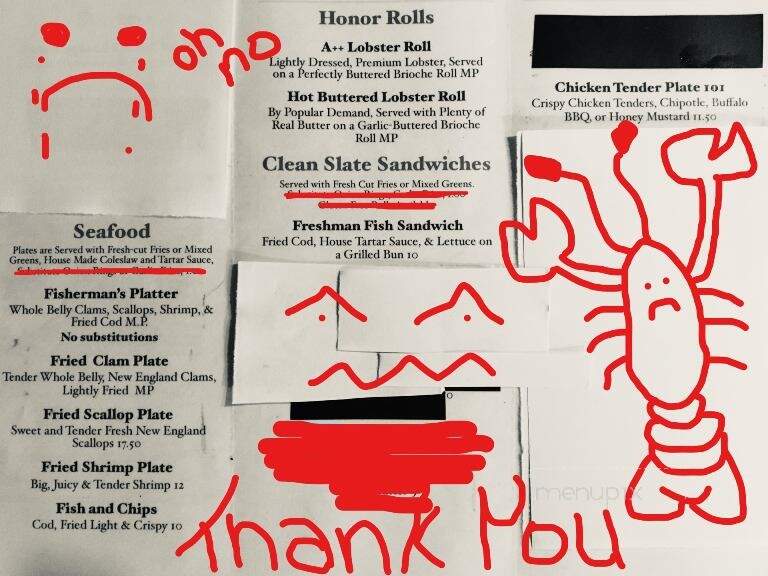 oh no
Honor Rolls
A++ Lobster Roll
Lightly Dressed, Premium Lobster, Served
on a Perfectly Buttered Brioche Roll MP
Hot Buttered Lobster Roll
By Popular Demand, Served with Plenty of
Real Butter on a Garlic-Buttered Brioche
Roll MP
Clean Slate Sandwiches
Served with Fresh Cut Fries or Mixed Greens.
Freshman Fish Sandwich
Fried Cod, House Tartar Sauce, & Lettuce on
a Grilled Bun 10
Chicken Tender Plate 101
Crispy Chicken Tenders, Chipotle, Buffalo
BBQ, or Honey Mustard 11.50
Seafood
Plates are Served with Fresh-cut Fries or Mixed
Greens, House Made Coleslaw and Tartar Sauce,
Fisherman's Platter
Whole Belly Clams, Scallops, Shrimp, &
Fried Cod M.P.
No substitutions
Fried Clam Plate
Tender Whole Belly, New England Clams,
Lightly Fried MP
Fried Scallop Plate
Sweet and Tender Fresh New England
Scallops 17.50
Fried Shrimp Plate
Big, Juicy & Tender Shrimp 12
Fish and Chips
Cod, Fried Light & Crispy 10
menupix
Thank You